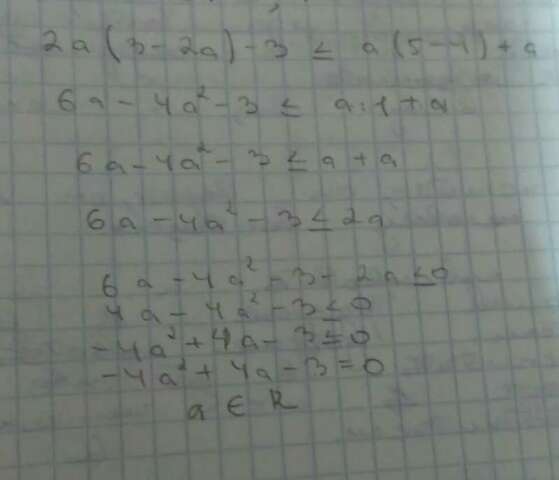 2a(3-2a)-3 ≤ a(5-4)+a
6a-4a²-3 ≤ a·1+a
6a-4a²-3 ≤ a+a
6a-4a²-3 ≤ 2a
6a-4a²-3-2a ≤ 0
4a-4a²-3 ≤ 0
-4a²+4a-3 ≤ 0
-4a²+4a-3=0
a ∈ R